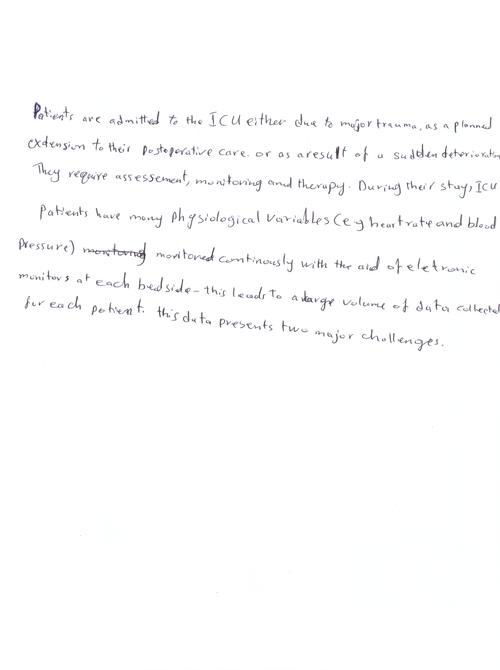 Patients are admitted to the ICU either due to major trauma, as a planned
extension to their postoperative care. or as a result of a sudden deterioration
They require assessement, monitoring and therapy. During their stay, ICU
patients have many physiological variables (e g heart rate and blood
pressure) monitoring monitored continously with the aid of eletronic
monitors at each bedside - this leads to a large volume of data collected
for each patient. this data presents two major challenges.